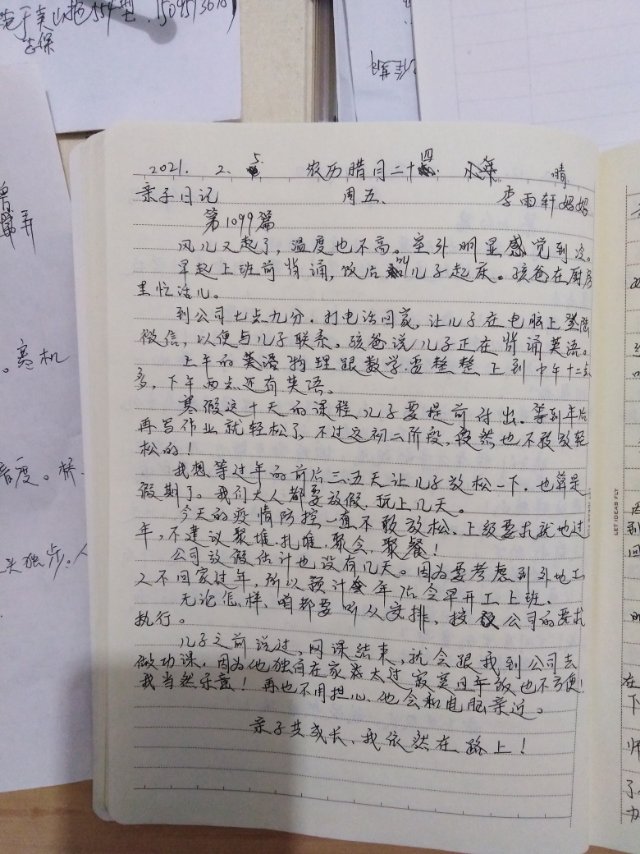 2021. 2. 5 农历腊月二十四 小年 晴
亲子日记 周五. 李雨轩妈妈
第1099篇
风儿又起了，温度也不高。室外明显感觉到冷。
早起上班前背诵，饭后叫儿子起床。孩爸在厨房
里忙活儿。
到公司七点九分。打电话回家，让儿子在电脑上登陆
微信，以便与儿子联系。孩爸说儿子正在背诵英语。
上午的英语物理跟数学要整整上到中午十二点
多，下午两点还有英语。
寒假这十天的课程儿子要提前付出。等到年后
再写作业就轻松了，不过这初二阶段，竟然也不敢放轻
松的！
我想等过年的前后三五天让儿子放松一下，也算是
假期了。我们大人都要放假，玩上几天。
今天的疫情防控一直不敢放松，上级要求就地过
年，不建议聚堆、扎堆、聚会、聚餐！
公司放假估计也没有几天。因为要考虑到外地工
人不回家过年，所以预计今年后会早开工上班。
无论怎样，咱都要听从安排，按公司的要求
执行。
儿子之前说过，网课结束，就会跟我到公司去
做功课，因为他独自在家
我当然乐意！再也不用担心他会和电脑亲近。
亲子共成长，我依然在路上！
LET IDEAS FLY